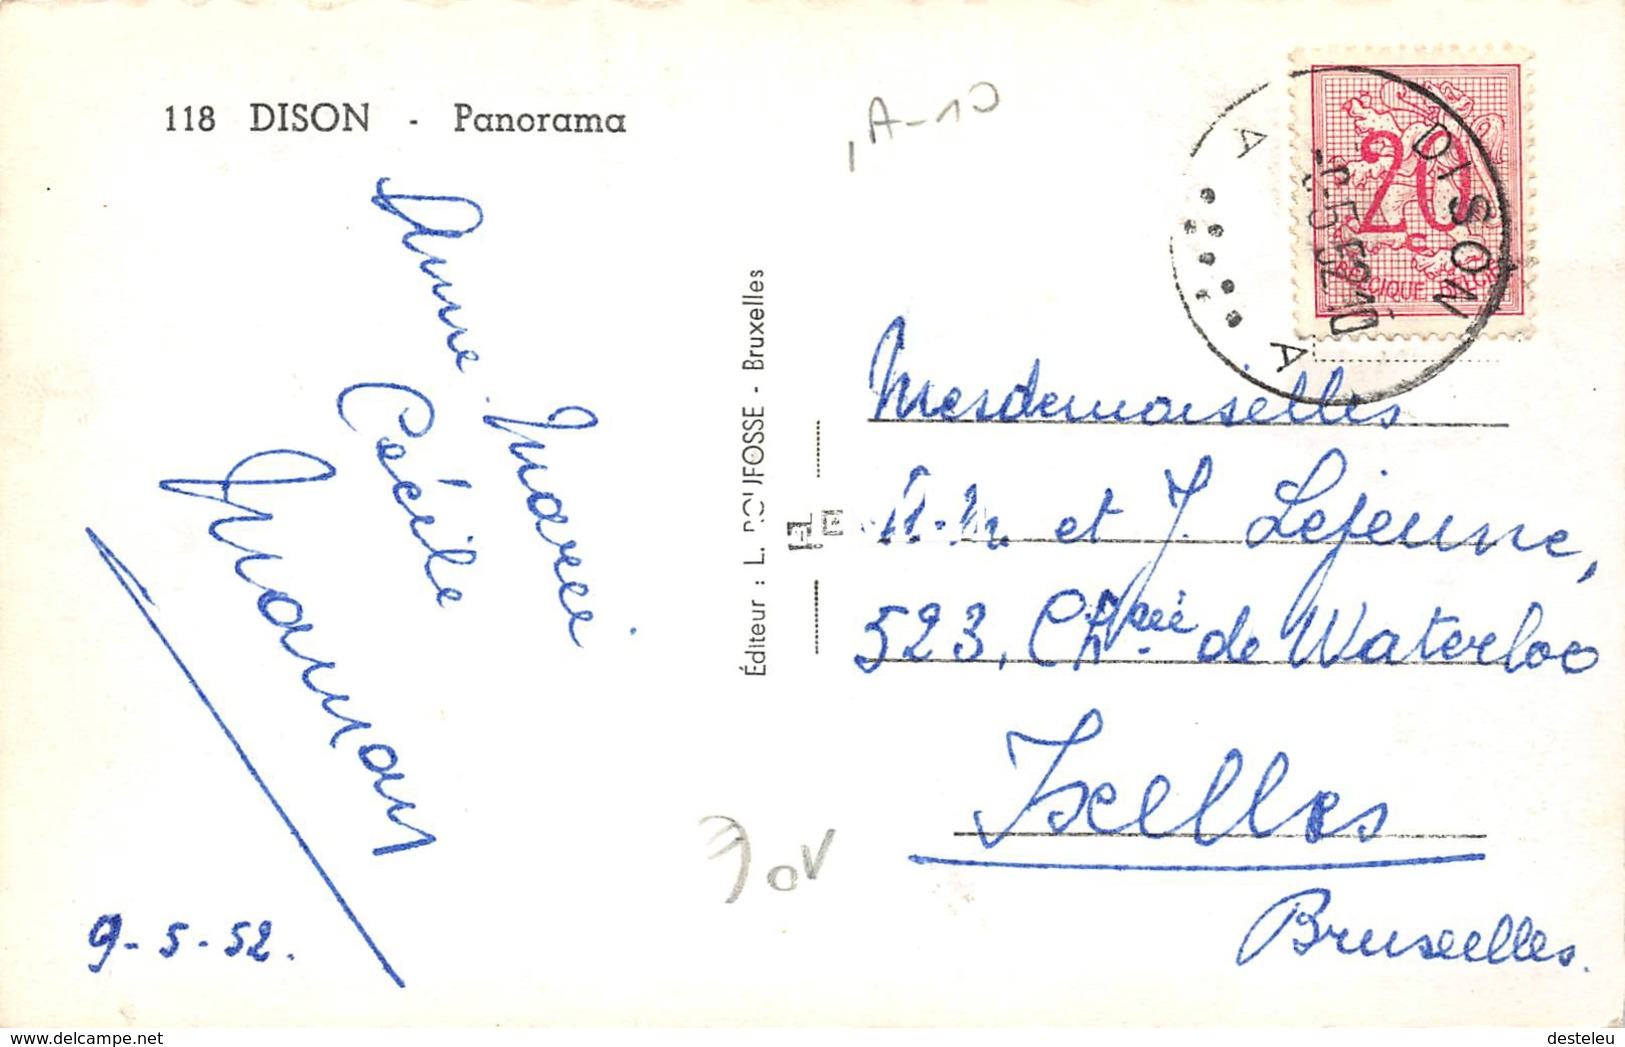 118 DISON - Panorama
Anne-Marie
Cécile
Maman
9-5-52.
Éditeur : L. ROUFOSSE - Bruxelles
A-10
20
BELGIQUE BELGIE
DISON
A A
Mesdemoiselles
A-M et J. Lejeune,
523, Chssée de Waterloo
Ixelles
Bruxelles.
www.delcampe.net
desteleu